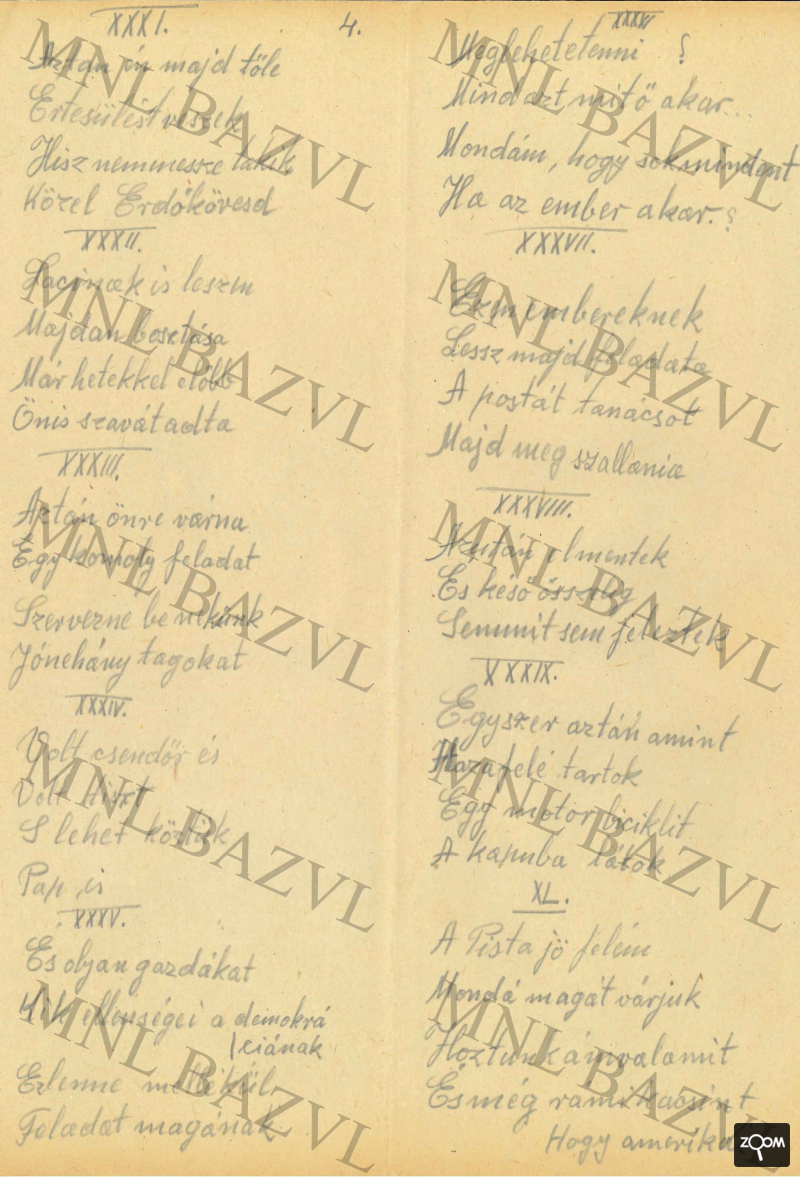 4.
XXXI.
Aztán én majd tőle
Értesülést veszek
Hisz nemmesze lakik
Közel Erdőkövesd
XXXII.
Lacinak is leszen
Majdan beosztása
Már hetekkel előbb
Önis szavát adta
XXXIII.
Aztán önre várna
Egy komoly feladat
Szervezne be nékünk
Jónehány tagokat
XXXIV.
Volt csendőr és
Volt tiszt
S lehet köztük
Pap is
XXXV.
És olyan gazdákat
Kik ellenségei a demokrá
ciának
Ez lenne
Feladat magának
XXXVI
Megtehetetenni ?
Mindazt mit ő akar...
Mondám, hogy sokmindent
Ha az ember akar.?
XXXVII.
Ezen embereknek
Lessz majd feladata
A postát tanácsot
Majd meg szallania
XXXVIII.
Azután elmentek
És késő összelig
Semmit sem jeleztek
XXXIX.
Egyszer aztán amint
Hazafelé tartok
Egy motorbiciklit
A kapuba látok
XL.
A Pista jö felém
Mondá magát várjuk
Hoztunk ám valamit
És még rámkacsint
Hogy amerika
MNL BAZVL
MNL BAZVL
MNL BAZVL
MNL BAZVL
MNL BAZVL
MNL BAZVL
MNL BAZVL
MNL BAZVL
MNL BAZVL
MNL BAZVL
ZOOM